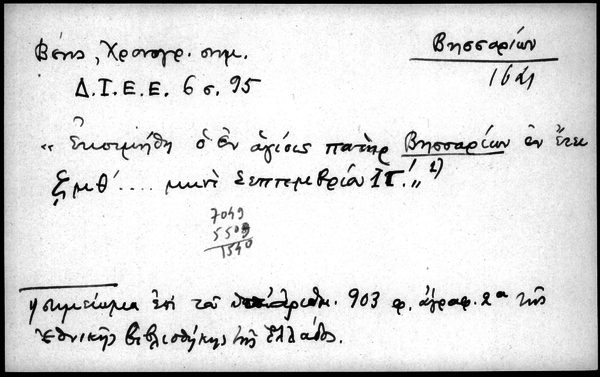 Βέης, Χρονογρ. σημ.
Βησσαρίων
1641
Δ.Ι.Ε.Ε. 6 σ. 95
"Ἐκοιμήθη ὁ ἐν ἁγίοις πατὴρ Βησσαρίων ἐν ἔτει
ζμθ'.... μηνὶ Σεπτεμβρίου ΙΓ'." 1)
7049
5509
1540
1) σημείωμα ἐπὶ τοῦ ὑπ' ἀριθμ. 903 φ. ἄγραφ. 2α τῆς
Ἐθνικῆς Βιβλιοθήκης τῆς Ἑλλάδος.